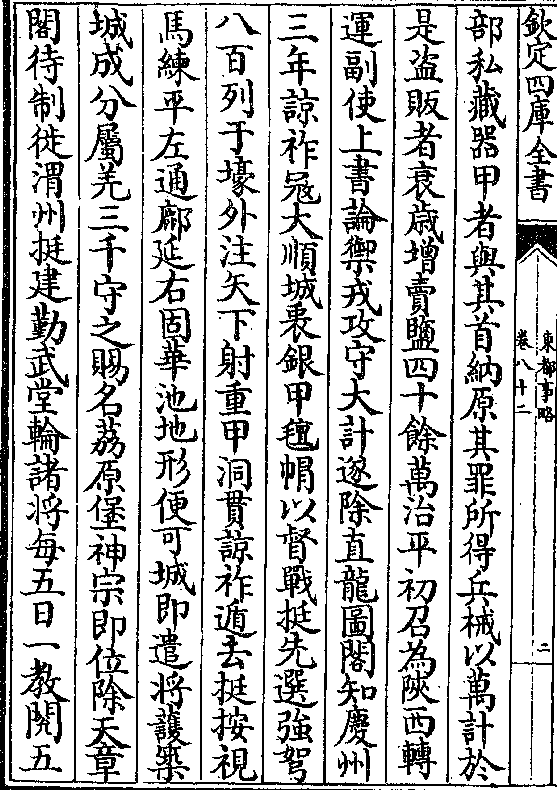 欽定四庫全書
東都事略
卷八十二
二
部私藏器甲者與其首納原其罪所得兵械以萬計於
是盜販者衰歳増賣鹽四十餘萬治平初召為陜西轉
運副使上書論禦戎攻守大計遂除直龍圖閣知慶州
三年諒祚冦大順城裹銀甲氊帽以督戰挺先選強弩
八百列于壕外注矢下射重甲洞貫諒祚遁去挺按視
馬練平左通鄜延右固華池地形便可城即遣將護築
城成分屬羌三千守之賜名荔原堡神宗即位除天章
閣待制徙渭州挺建勤武堂輪諸將每五日一教閱五